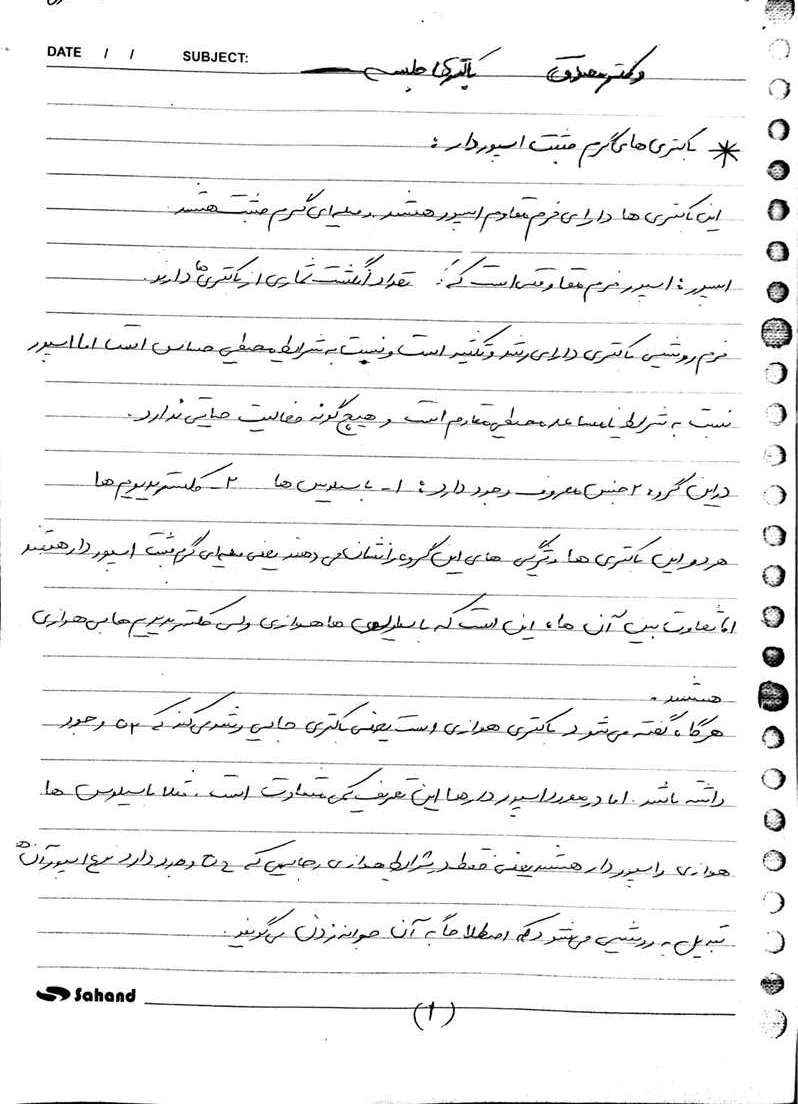 DATE / / SUBJECT: باکتری جلسه دکتر صدوق
* باکتری های گرم مثبت اسپوردار :
این باکتری ها دارای فرم مقاوم اسپور هستند. و میله ای گرم مثبت هستند.
اسپور : اسپور فرم مقاومتی است که : تعداد انگشت شماری از باکتری ها دارند.
فرم رویشی باکتری دارای رشد و تکثیر است و نسبت به شرایط محیطی حساس است اما اسپور
نسبت به شرایط نامساعد محیطی مقاوم است و هیچ گونه فعالیت حیاتی ندارد.
در این گروه ۲ جنس معروف وجود دارد : ۱- باسیلوس ها ۲- کلستریدیوم ها
هر دو این باکتری ها ویژگی های این گروه را نشان می دهند یعنی میله ای گرم مثبت اسپور دار هستند
اما تفاوت بین آن ها، این است که باسیلوس ها هوازی ولی کلستریدیوم ها بی هوازی
هستند.
هرگاه گفته می شود باکتری هوازی است یعنی باکتری جایی رشد می کند که O2 وجود
داشته باشد. اما در مورد اسپور دارها این تعریف کمی متفاوت است. مثلا باسیلوس ها
هوازی و اسپور دار هستند یعنی فقط در شرایط هوازی جایی که O2 وجود دارد اسپور آن ها
تبدیل به رویشی می شود که اصطلاحاً به آن جوانه زدن می گویند.
Sahand
(۱)